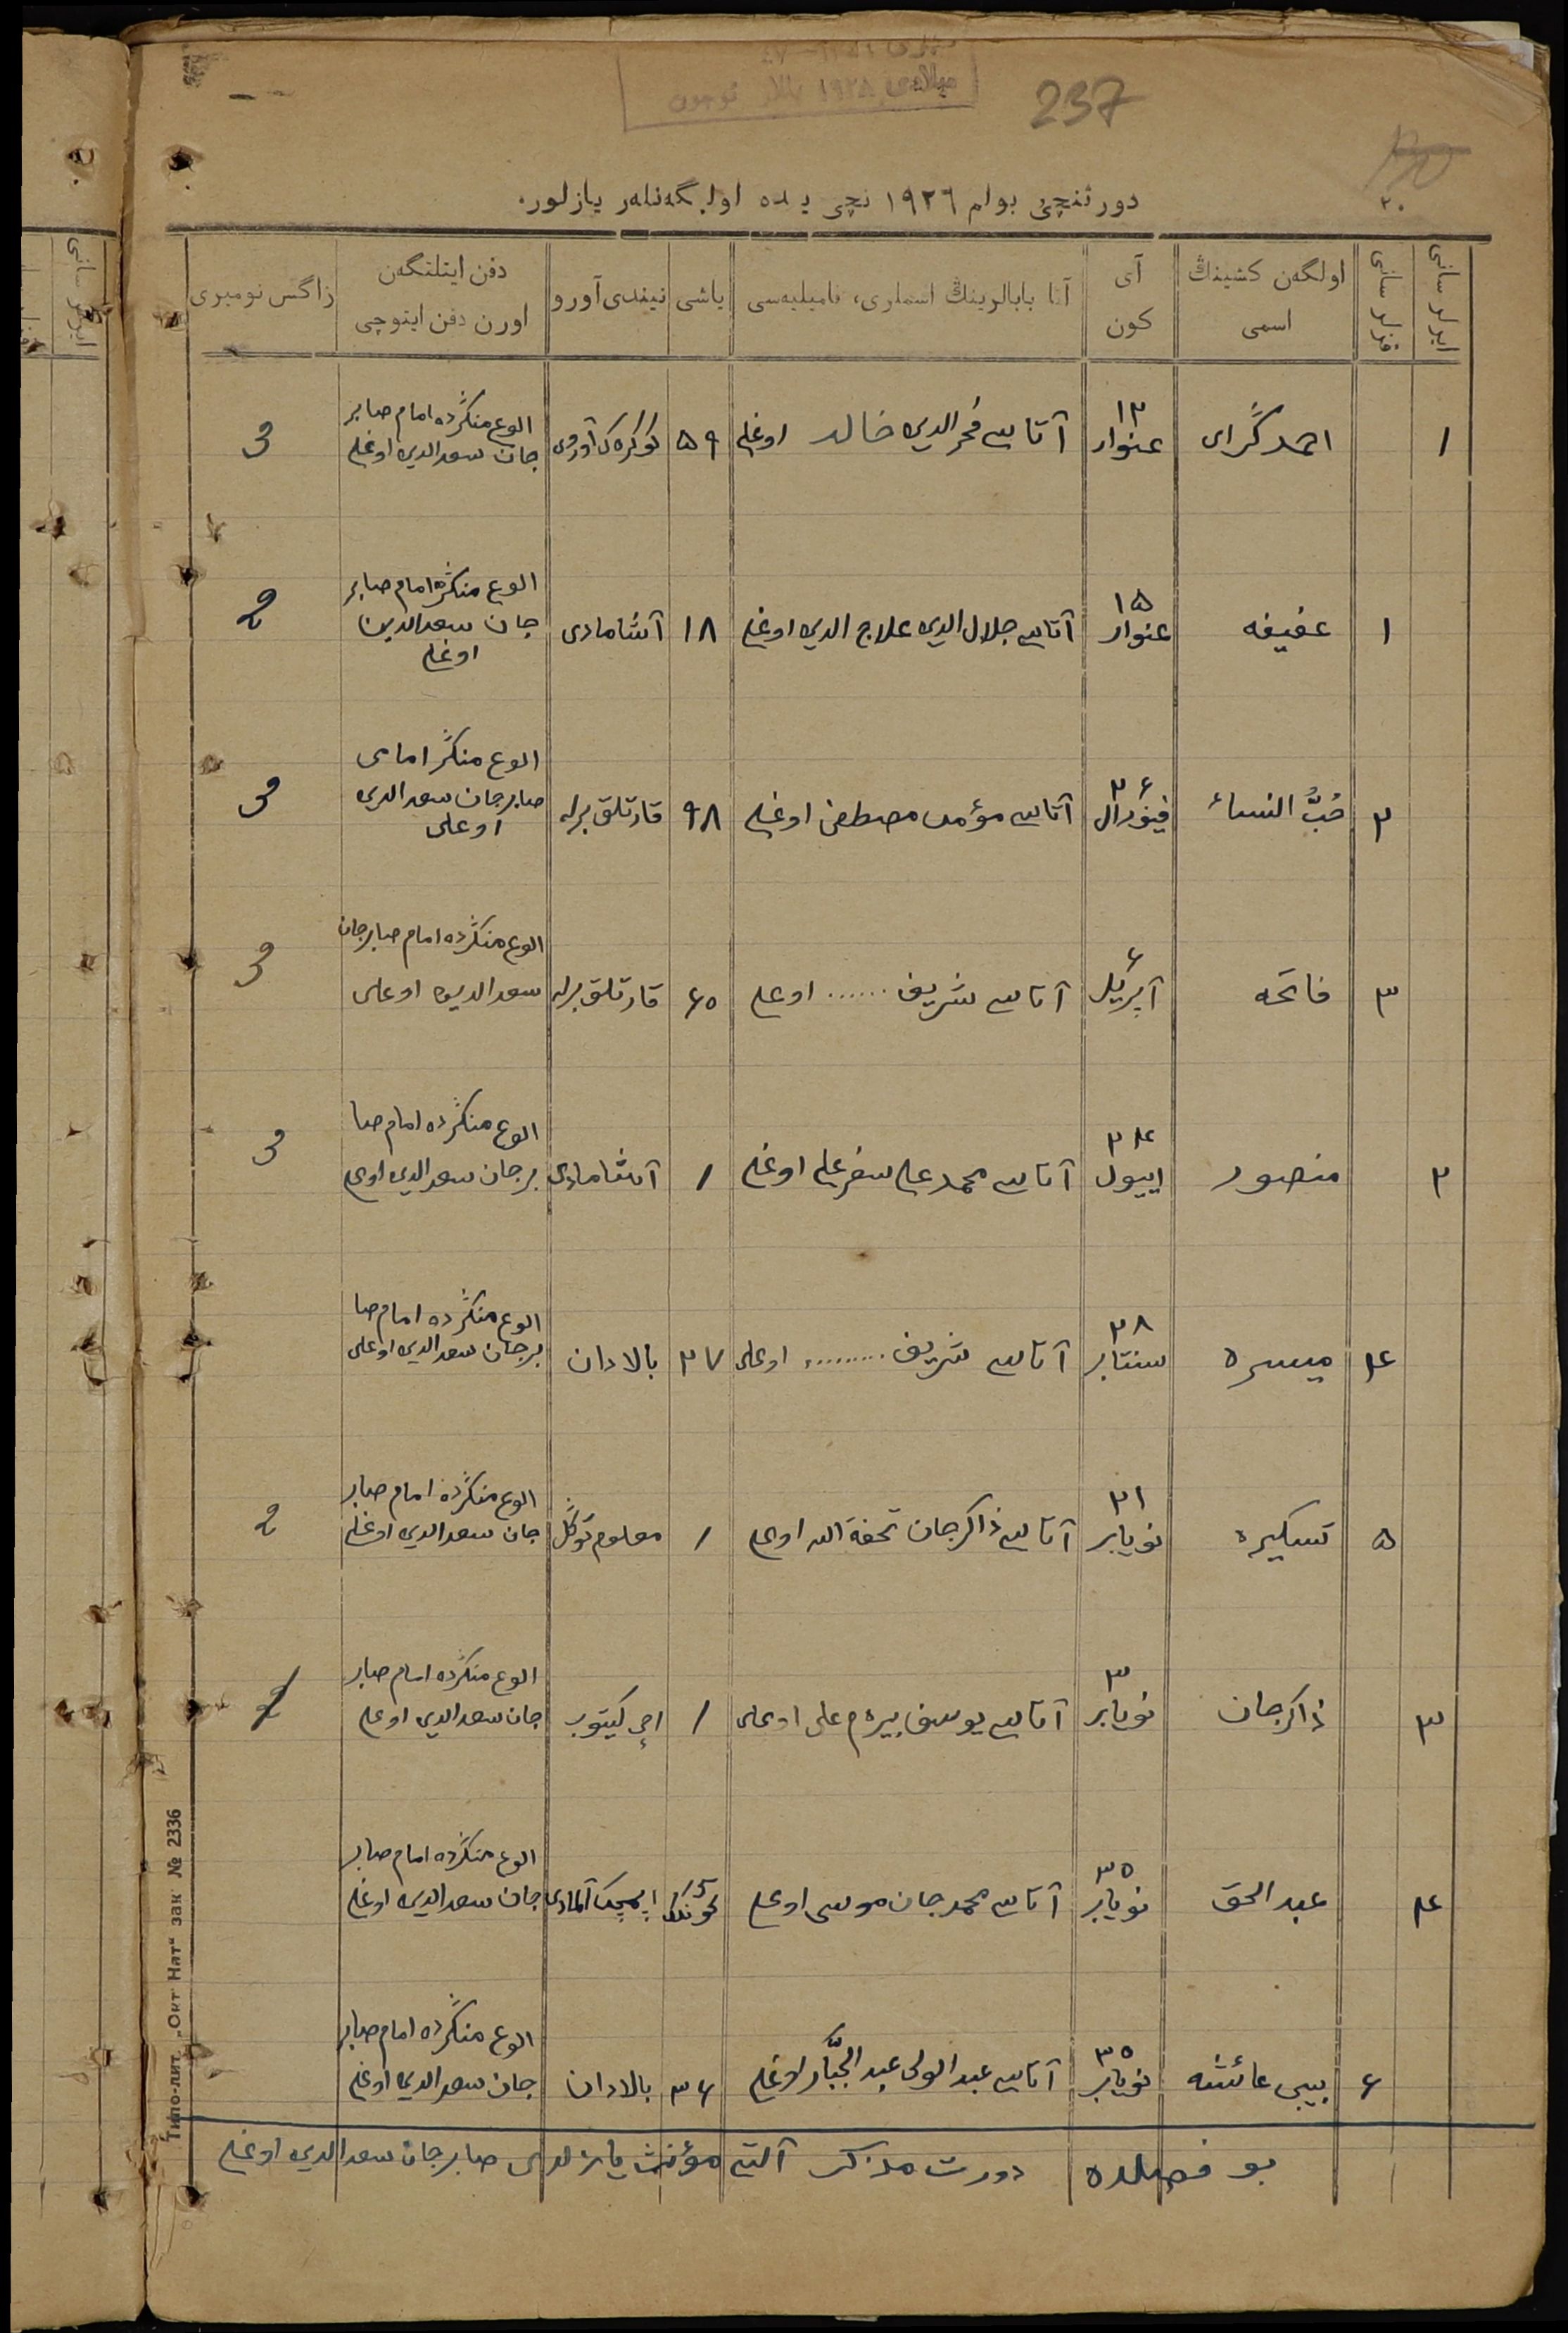 237
۲۰
دورتنچی بولم ۱۹۲٦ نچی یلده اولگه‌نلەر یازلور.
ایرلر سانی
قزلر سانی
اولگەن کشینڭ اسمی
آی کون
آتا بابالرینڭ اسملری، فامیلیەسی
یاشی
نیندی آورو
دفن ایتلنگەن اورن دفن ایتوچی
زاگس نومیری
۱ احمدگرای ۱۲ عنوار آتاسی فخرالدین خالد اوغلی ۵۹ کوکرەک آوروی الوغ منگرده امام صابر جان سعدالدین اوغلی 3
۱ عفیفه ۱۵ عنوار آتاسی جلال الدین علاج الدین اوغلی ۱۸ آشامادی الوغ منگرده امام صابر جان سعدالدین اوغلی 2
۲ حُبُّ النساء ۲۶ فیورال آتاسی مؤمن مصطفی اوغلی ۹۸ قارتلق برله الوغ منگر امامی صابرجان سعدالدین اوغلی 3
۳ فاتحه ۶ آپریل آتاسی شریف ...... اوغلی ۶۵ قارتلق برله الوغ منگرده امام صابرجان سعدالدین اوغلی 3
۲ منصور ۲۴ اییول آتاسی محمدعلی سفرعلی اوغلی ۱ آشامادی الوغ منگرده امام صا برجان سعدالدین اوغلی 3
۴ میسره ۲۸ سنتابر آتاسی شریف ........ اوغلی ۲۷ بالادان الوغ منگرده امام صا برجان سعدالدین اوغلی
۵ تسکیره ۲۱ نویابر آتاسی ذاکرجان تحفة الله اوغلی ۱ معلوم توگل الوغ منگرده امام صابر جان سعدالدین اوغلی 2
۳ ذاکرجان ۳ نویابر آتاسی یوسف بیرم علی اوغلی ۱ اچی کیتوب الوغ منگرده امام صابر جان سعدالدین اوغلی 2
۴ عبدالحق ۲۵ نویابر آتاسی محمدجان موسی اوغلی ۱۵ کونلک ایمچک آلمادی الوغ منگرده امام صابر جان سعدالدین اوغلی
۶ بیبی عائشه ۲۵ نویابر آتاسی عبدالولی عبدالجبَّار اوغلی ۳۶ بالادان الوغ منگرده امام صابر جان سعدالدین اوغلی
بو فصلده دورت مذکر آلتی مؤنث یازلدی صابرجان سعدالدین اوغلی
Типо-лит. „Окт Нат“ зак № 2336